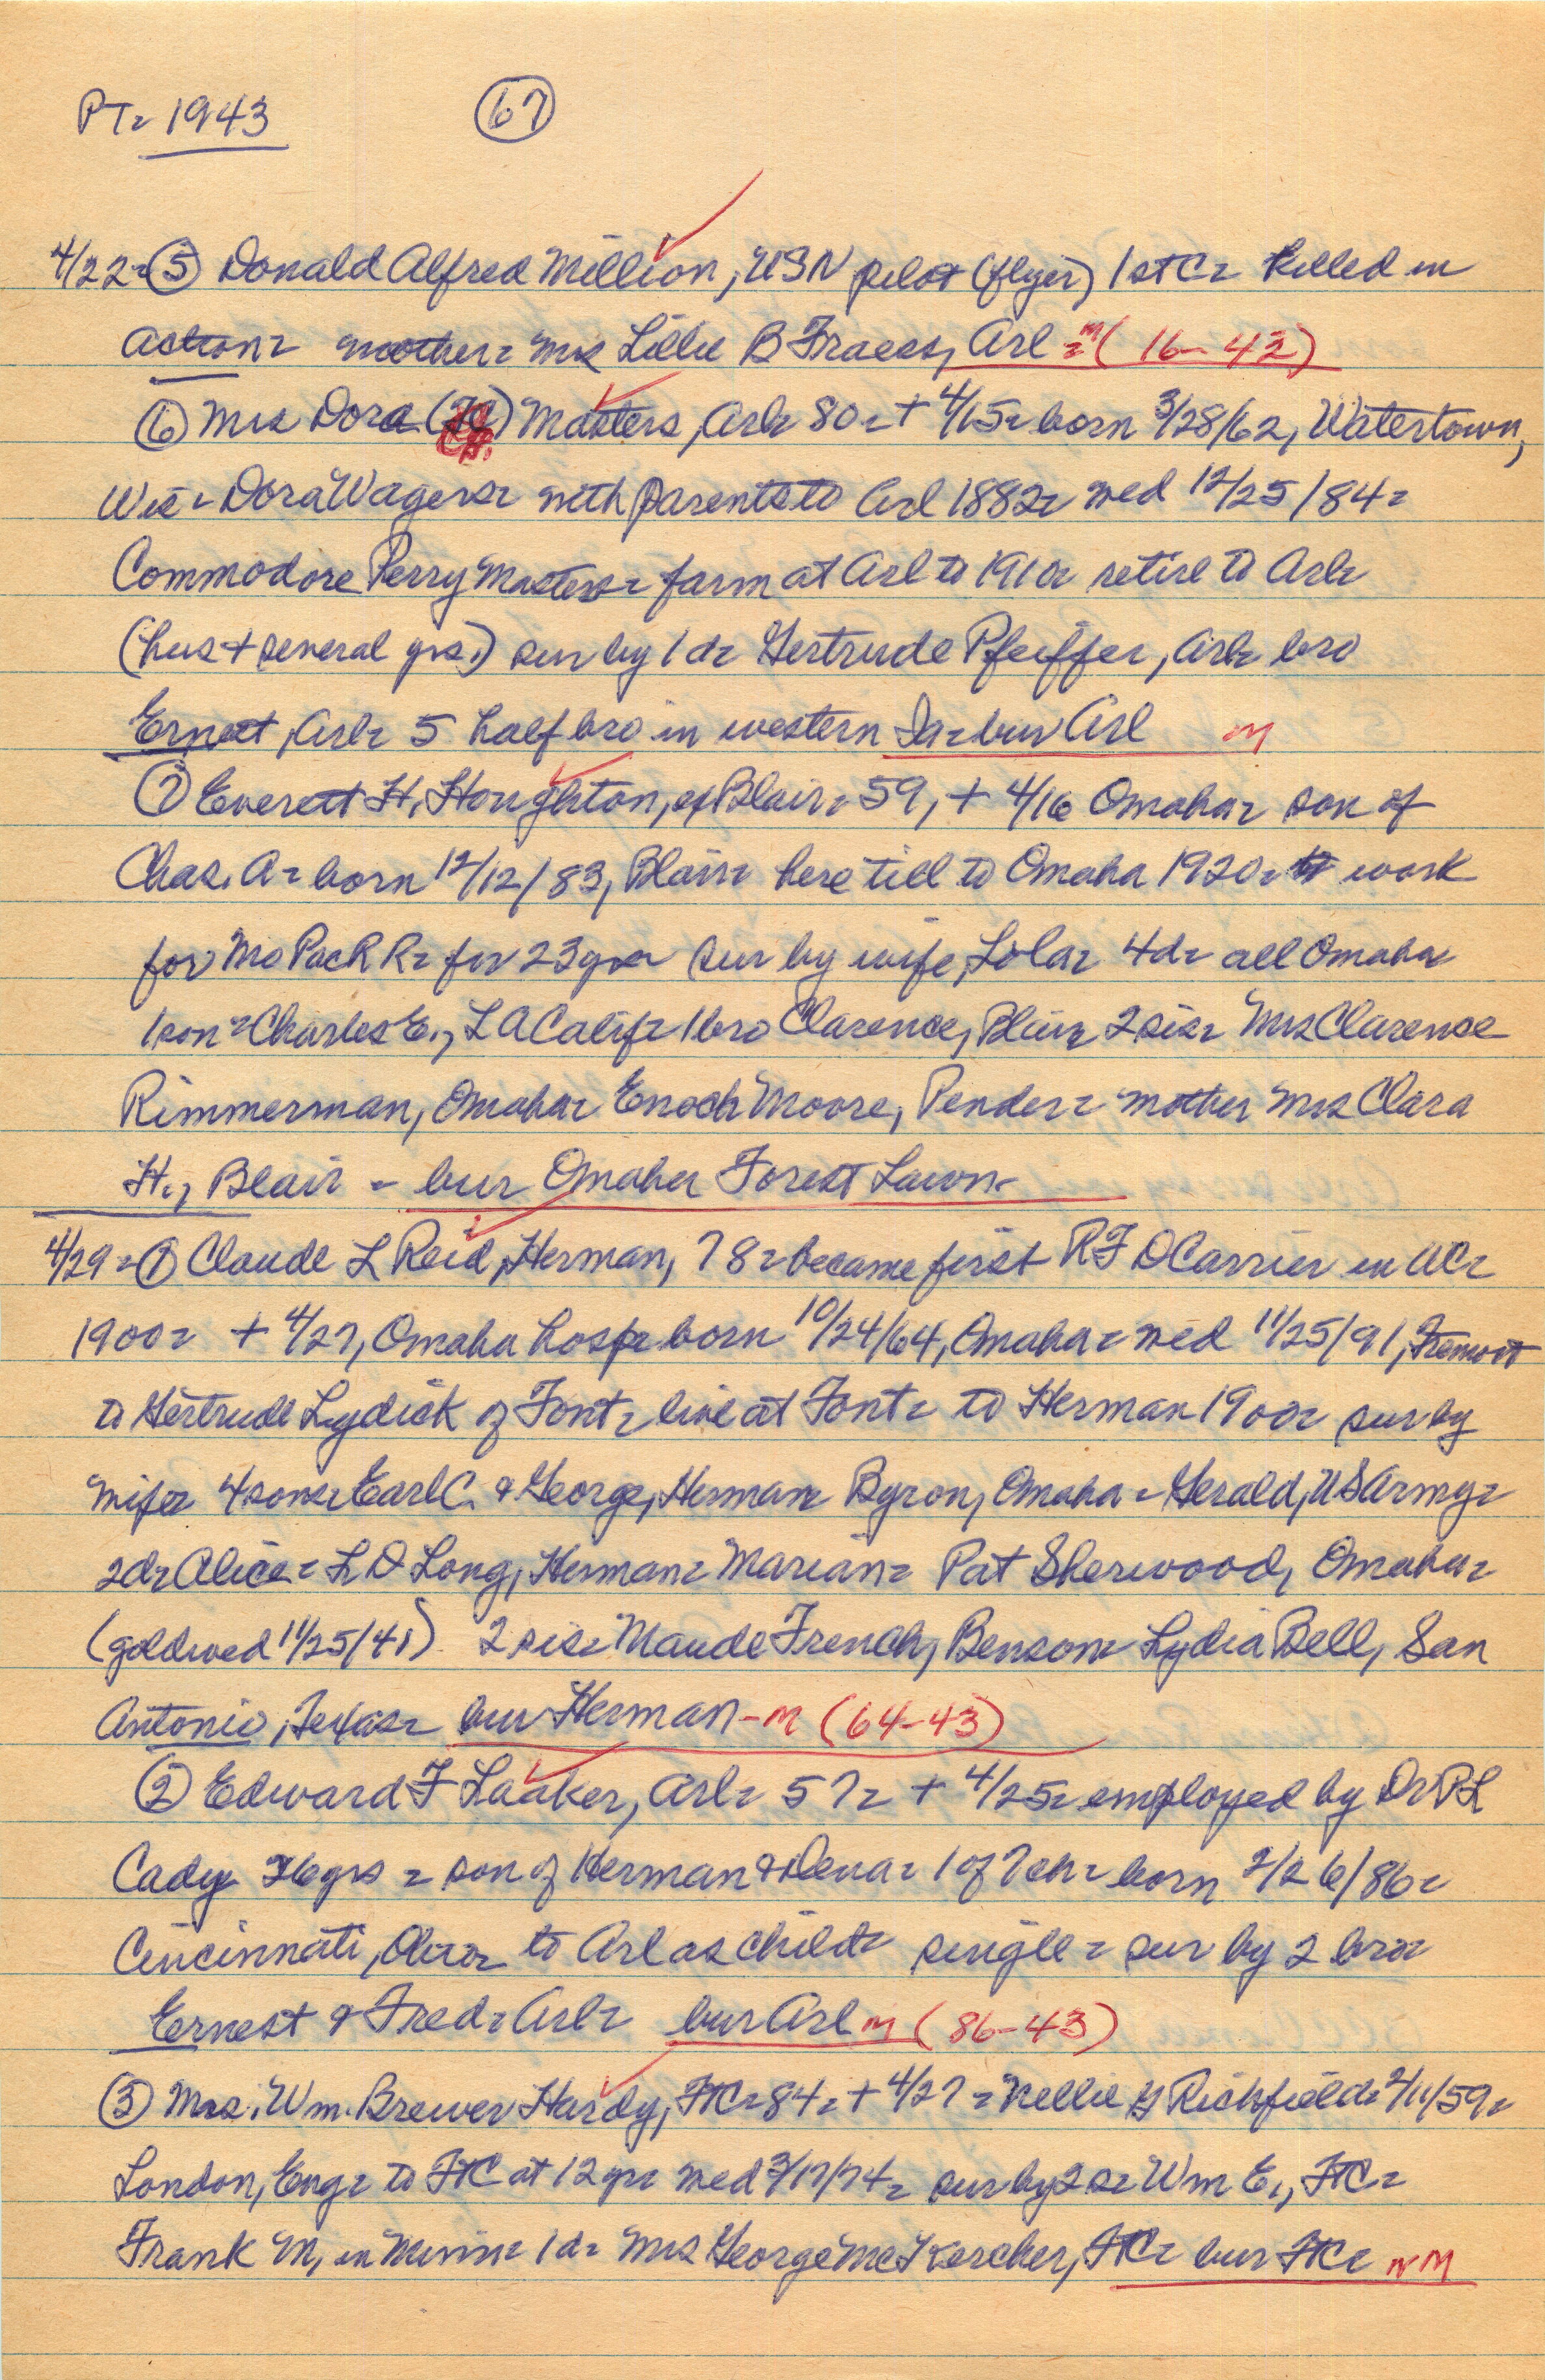 PT- 1943 67
4/22- 5 Donald Alfred Million, USN pilot (flyer) 1stC- Killed in
action- mother- Mrs Lillie B Fraess, Arl - M (16-42)
6 Mrs Dora Masters, Arl- 80- + 4/15- born 3/28/62, Watertown,
Wis- Dora Wagers- with parents to Arl 1882- wed 12/25/84-
Commodore Perry Masters- farm at Arl to 1910- retire to Arl-
(hus + several yrs.) sur by 1 d- Gertrude Pfeiffer, Arl- bro
Ernest, Arl- 5 half bro in western Ia- bur Arl M
7 Everett H. Houghton, ex Blair- 59, + 4/16 Omaha- son of
Chas. A- born 12/12/83, Blair- here till to Omaha 1920- work
for Mo Pac R R- for 23 yrs- sur by wife, Lola- 4d- all Omaha-
1 son- Charles E., L A Calif- 1 bro Clarence, Blair- 2 sis- Mrs Clarence
Rimmerman, Omaha- Enoch Moore, Pender- mother Mrs Clara
H., Blair - bur Omaha Forest Lawn-
4/29- 1 Claude L Reid, Herman, 78- became first R F D Carrier in WC-
1900- + 4/27, Omaha hosp- born 10/24/64, Omaha- wed 11/25/91, Fremont
to Gertrude Lydick of Font- live at Font- to Herman 1900- sur by
wife- 4 sons- Earl C. & George, Herman- Byron, Omaha- Gerald, US Army-
2d- Alice- L D Long, Herman- Marian- Pat Sherwood, Omaha-
(gold wed 11/25/41) 2 sis- Maude French, Benson- Lydia Bell, San
Antonio, Texas- bur Herman - M (64-43)
2 Edward F Laaker, Arl- 57- + 4/25- employed by Dr PL
Cady 36 yrs - son of Herman & Dena- 1 of 7 ch- born 2/26/86-
Cincinnati, Ohio- to Arl as child- single- sur by 2 bro-
Ernest & Fred- Arl- bur Arl M (86-43)
3 Mrs. Wm. Brewer Hardy, FtC- 84- + 4/27- Nellie Richfield- 2/11/59-
London, Eng- to FtC at 12 yr- wed 3/17/74- sur by 2 s- Wm E., FtC-
Frank M, in Minn- 1 d- Mrs George McKercher, FtC- bur FtC- NM